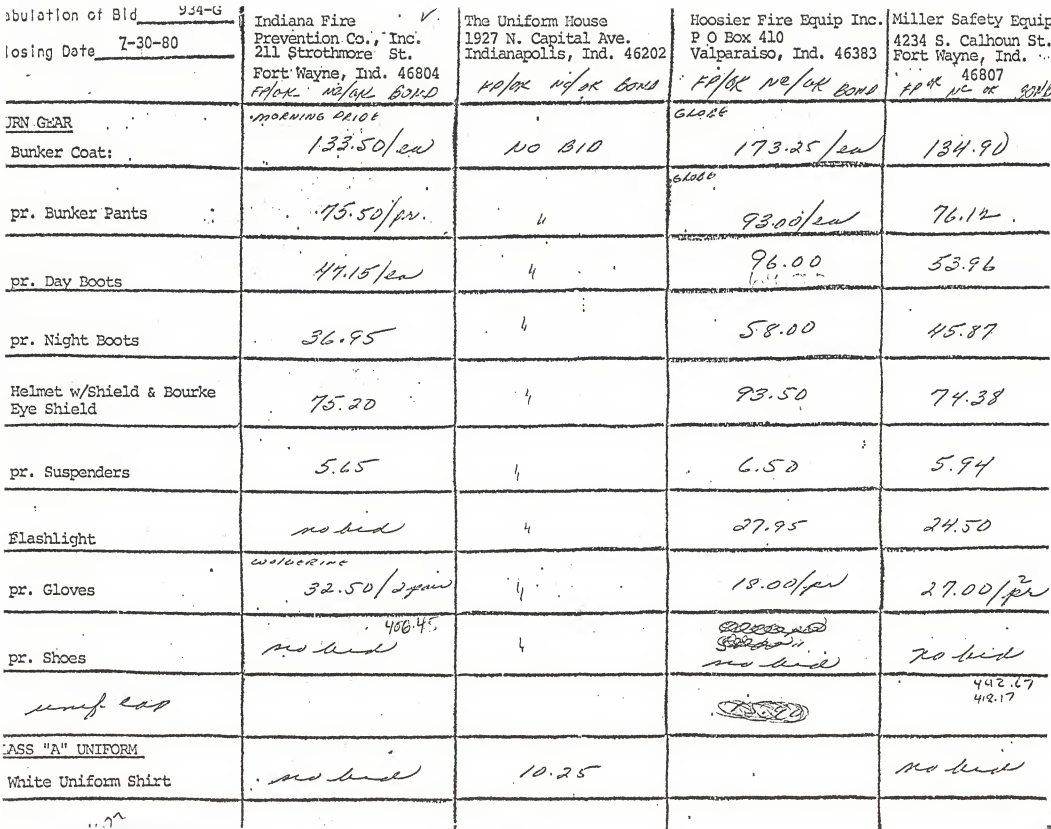 abulation of Bid 934-G
losing Date 7-30-80
Indiana Fire
Prevention Co., Inc.
211 Strothmore St.
Fort Wayne, Ind. 46804
FP/OK NC/OK BOND
The Uniform House
1927 N. Capital Ave.
Indianapolis, Ind. 46202
FP/OK NC/OK BOND
Hoosier Fire Equip Inc.
P O Box 410
Valparaiso, Ind. 46383
FP/OK NC/OK BOND
Miller Safety Equip
4234 S. Calhoun St.
Fort Wayne, Ind.
46807
FP OK NC OK BOND
URN GEAR
Bunker Coat:
MORNING PRIDE
133.50/ea
NO BID
GLOBE
173.25/ea
134.90
pr. Bunker Pants
75.50/pr.
"
GLOBE
93.00/ea
76.12
pr. Day Boots
47.15/ea
"
96.00
53.96
pr. Night Boots
36.95
"
58.00
45.87
Helmet w/Shield & Bourke
Eye Shield
75.20
"
93.50
74.38
pr. Suspenders
5.65
"
6.50
5.94
Flashlight
no bid
"
27.95
24.50
pr. Gloves
WOLVERINE
32.50/2 pair
"
18.00/pr
27.00/2 pr
pr. Shoes
406.45
no bid
"
no bid
no bid
unif cap
442.67
418.17
LASS "A" UNIFORM
White Uniform Shirt
no bid
10.25
no bid